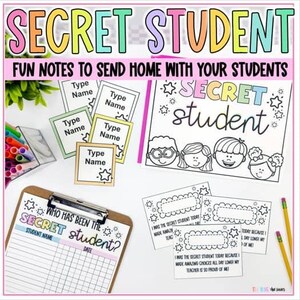 SECRET STUDENT
FUN NOTES TO SEND HOME WITH YOUR STUDENTS
Type
Name
Type
Name
Type
Name
Type
Name
Type
Name
SECRET
student
WHO HAS BEEN THE
SECRET
student?
STUDENT NAME
DATE
I WAS THE SECRET STUDENT TODAY! I
MADE AMAZING CHOICES ALL DAY LONG! MY
TEACHER IS SO PROUD OF ME!